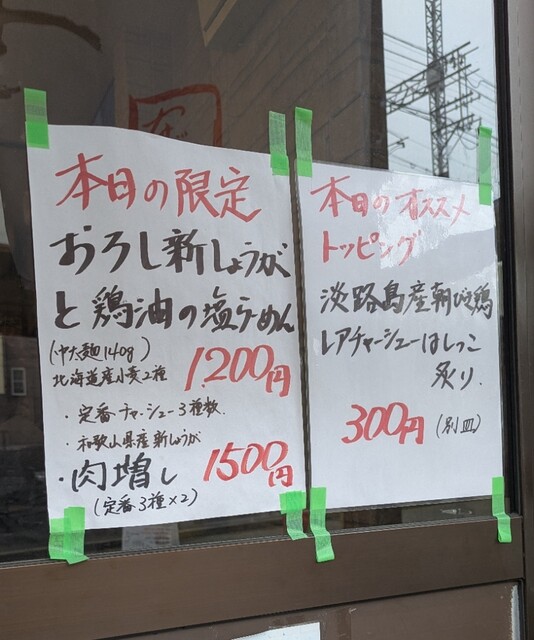 本日の限定
おろし新しょうが
と鶏油の塩らーめん
(中太麺140g)
北海道産小麦2種
1200円
・定番チャーシュー3種数
・和歌山県産新しょうが
・肉増し 1500円
(定番3種×2)
本日のオススメ
トッピング
淡路島産朝びき鶏
レアチャーシューはしっこ
炙り
300円 (別皿)